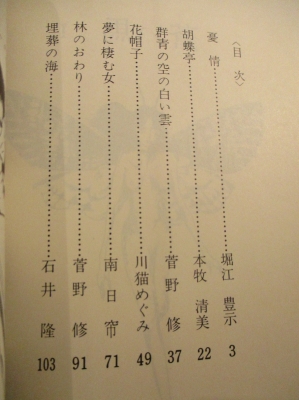 〈目次〉
憂情……堀江豊示 3
胡蝶亭……本牧清美 22
群青の空の白い雲……菅野修 37
花帽子……川猫めぐみ 49
夢に棲む女……南日帘 71
林のおわり……菅野修 91
埋葬の海……石井隆 103